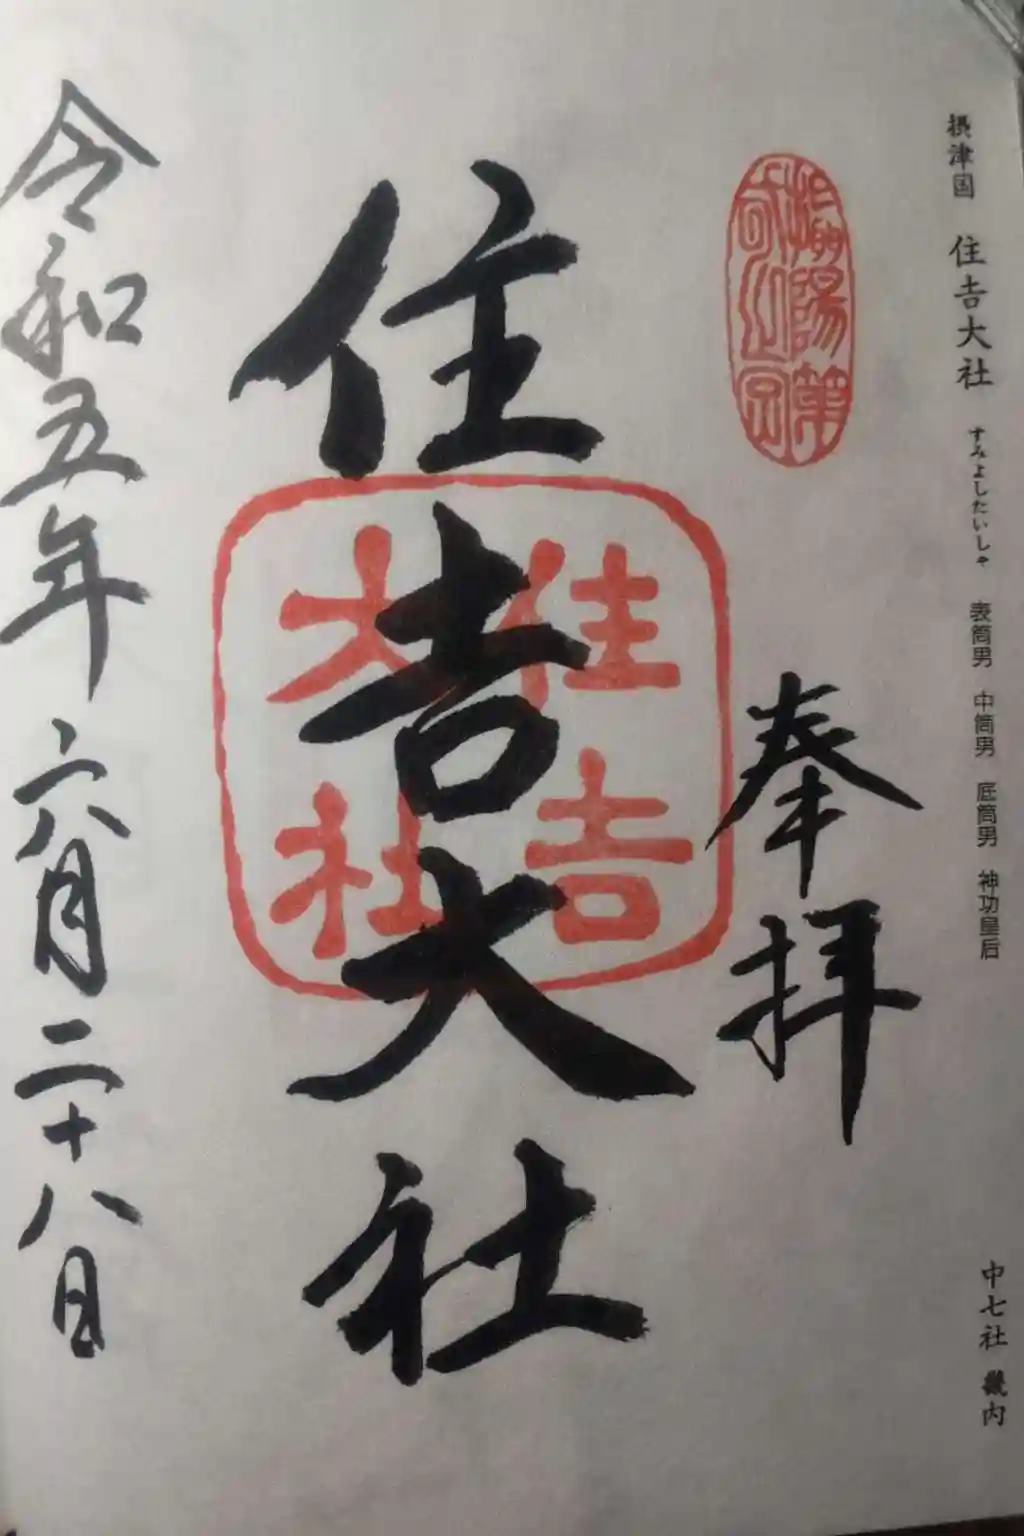 摂津国 住吉大社 すみよしたいしゃ 表筒男 中筒男 底筒男 神功皇后 中七社 畿内
奉拝
住吉大社
住吉
大社
令和五年六月二十八日